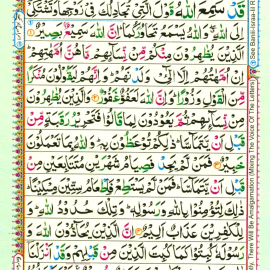 قَدْ سَمِعَ اللّٰهُ قَوْلَ الَّتِیْ تُجَادِلُكَ فِیْ زَوْجِهَا وَتَشْتَكِیْۤ
اِلَی اللّٰهِ وَاللّٰهُ یَسْمَعُ تَحَاوُرَكُمَا اِنَّ اللّٰهَ سَمِیْعٌۢ بَصِیْرٌ ۝۱
اَلَّذِیْنَ یُظٰهِرُوْنَ مِنْكُمْ مِّنْ نِّسَآىِٕهِمْ مَّا هُنَّ اُمَّهٰتِهِمْ
اِنْ اُمَّهٰتُهُمْ اِلَّا الّٰٓـِٔیْ وَلَدْنَهُمْ وَاِنَّهُمْ لَیَقُوْلُوْنَ مُنْكَرًا
مِّنَ الْقَوْلِ وَزُوْرًا وَاِنَّ اللّٰهَ لَعَفُوٌّ غَفُوْرٌ ۝۲ وَالَّذِیْنَ یُظٰهِرُوْنَ
مِنْ نِّسَآىِٕهِمْ ثُمَّ یَعُوْدُوْنَ لِمَا قَالُوْا فَتَحْرِیْرُ رَقَبَةٍ مِّنْ
قَبْلِ اَنْ یَّتَمَآسَّا ذٰلِكُمْ تُوْعَظُوْنَ بِهٖ وَاللّٰهُ بِمَا تَعْمَلُوْنَ
خَبِیْرٌ ۝۳ فَمَنْ لَّمْ یَجِدْ فَصِیَامُ شَهْرَیْنِ مُتَتَابِعَیْنِ مِنْ
قَبْلِ اَنْ یَّتَمَآسَّا فَمَنْ لَّمْ یَسْتَطِعْ فَاِطْعَامُ سِتِّیْنَ مِسْكِیْنًا
ذٰلِكَ لِتُؤْمِنُوْا بِاللّٰهِ وَرَسُوْلِهٖ وَتِلْكَ حُدُوْدُ اللّٰهِ وَ
لِلْكٰفِرِیْنَ عَذَابٌ اَلِیْمٌ ۝۴ اِنَّ الَّذِیْنَ یُحَآدُّوْنَ اللّٰهَ وَ
رَسُوْلَهٗ كُبِتُوْا كَمَا كُبِتَ الَّذِیْنَ مِنْ قَبْلِهِمْ وَقَدْ اَنْزَلْنَاۤ
There Will Be Amalgamation (Mixing The Voice Of The Letters)
See Banni-Israeel R